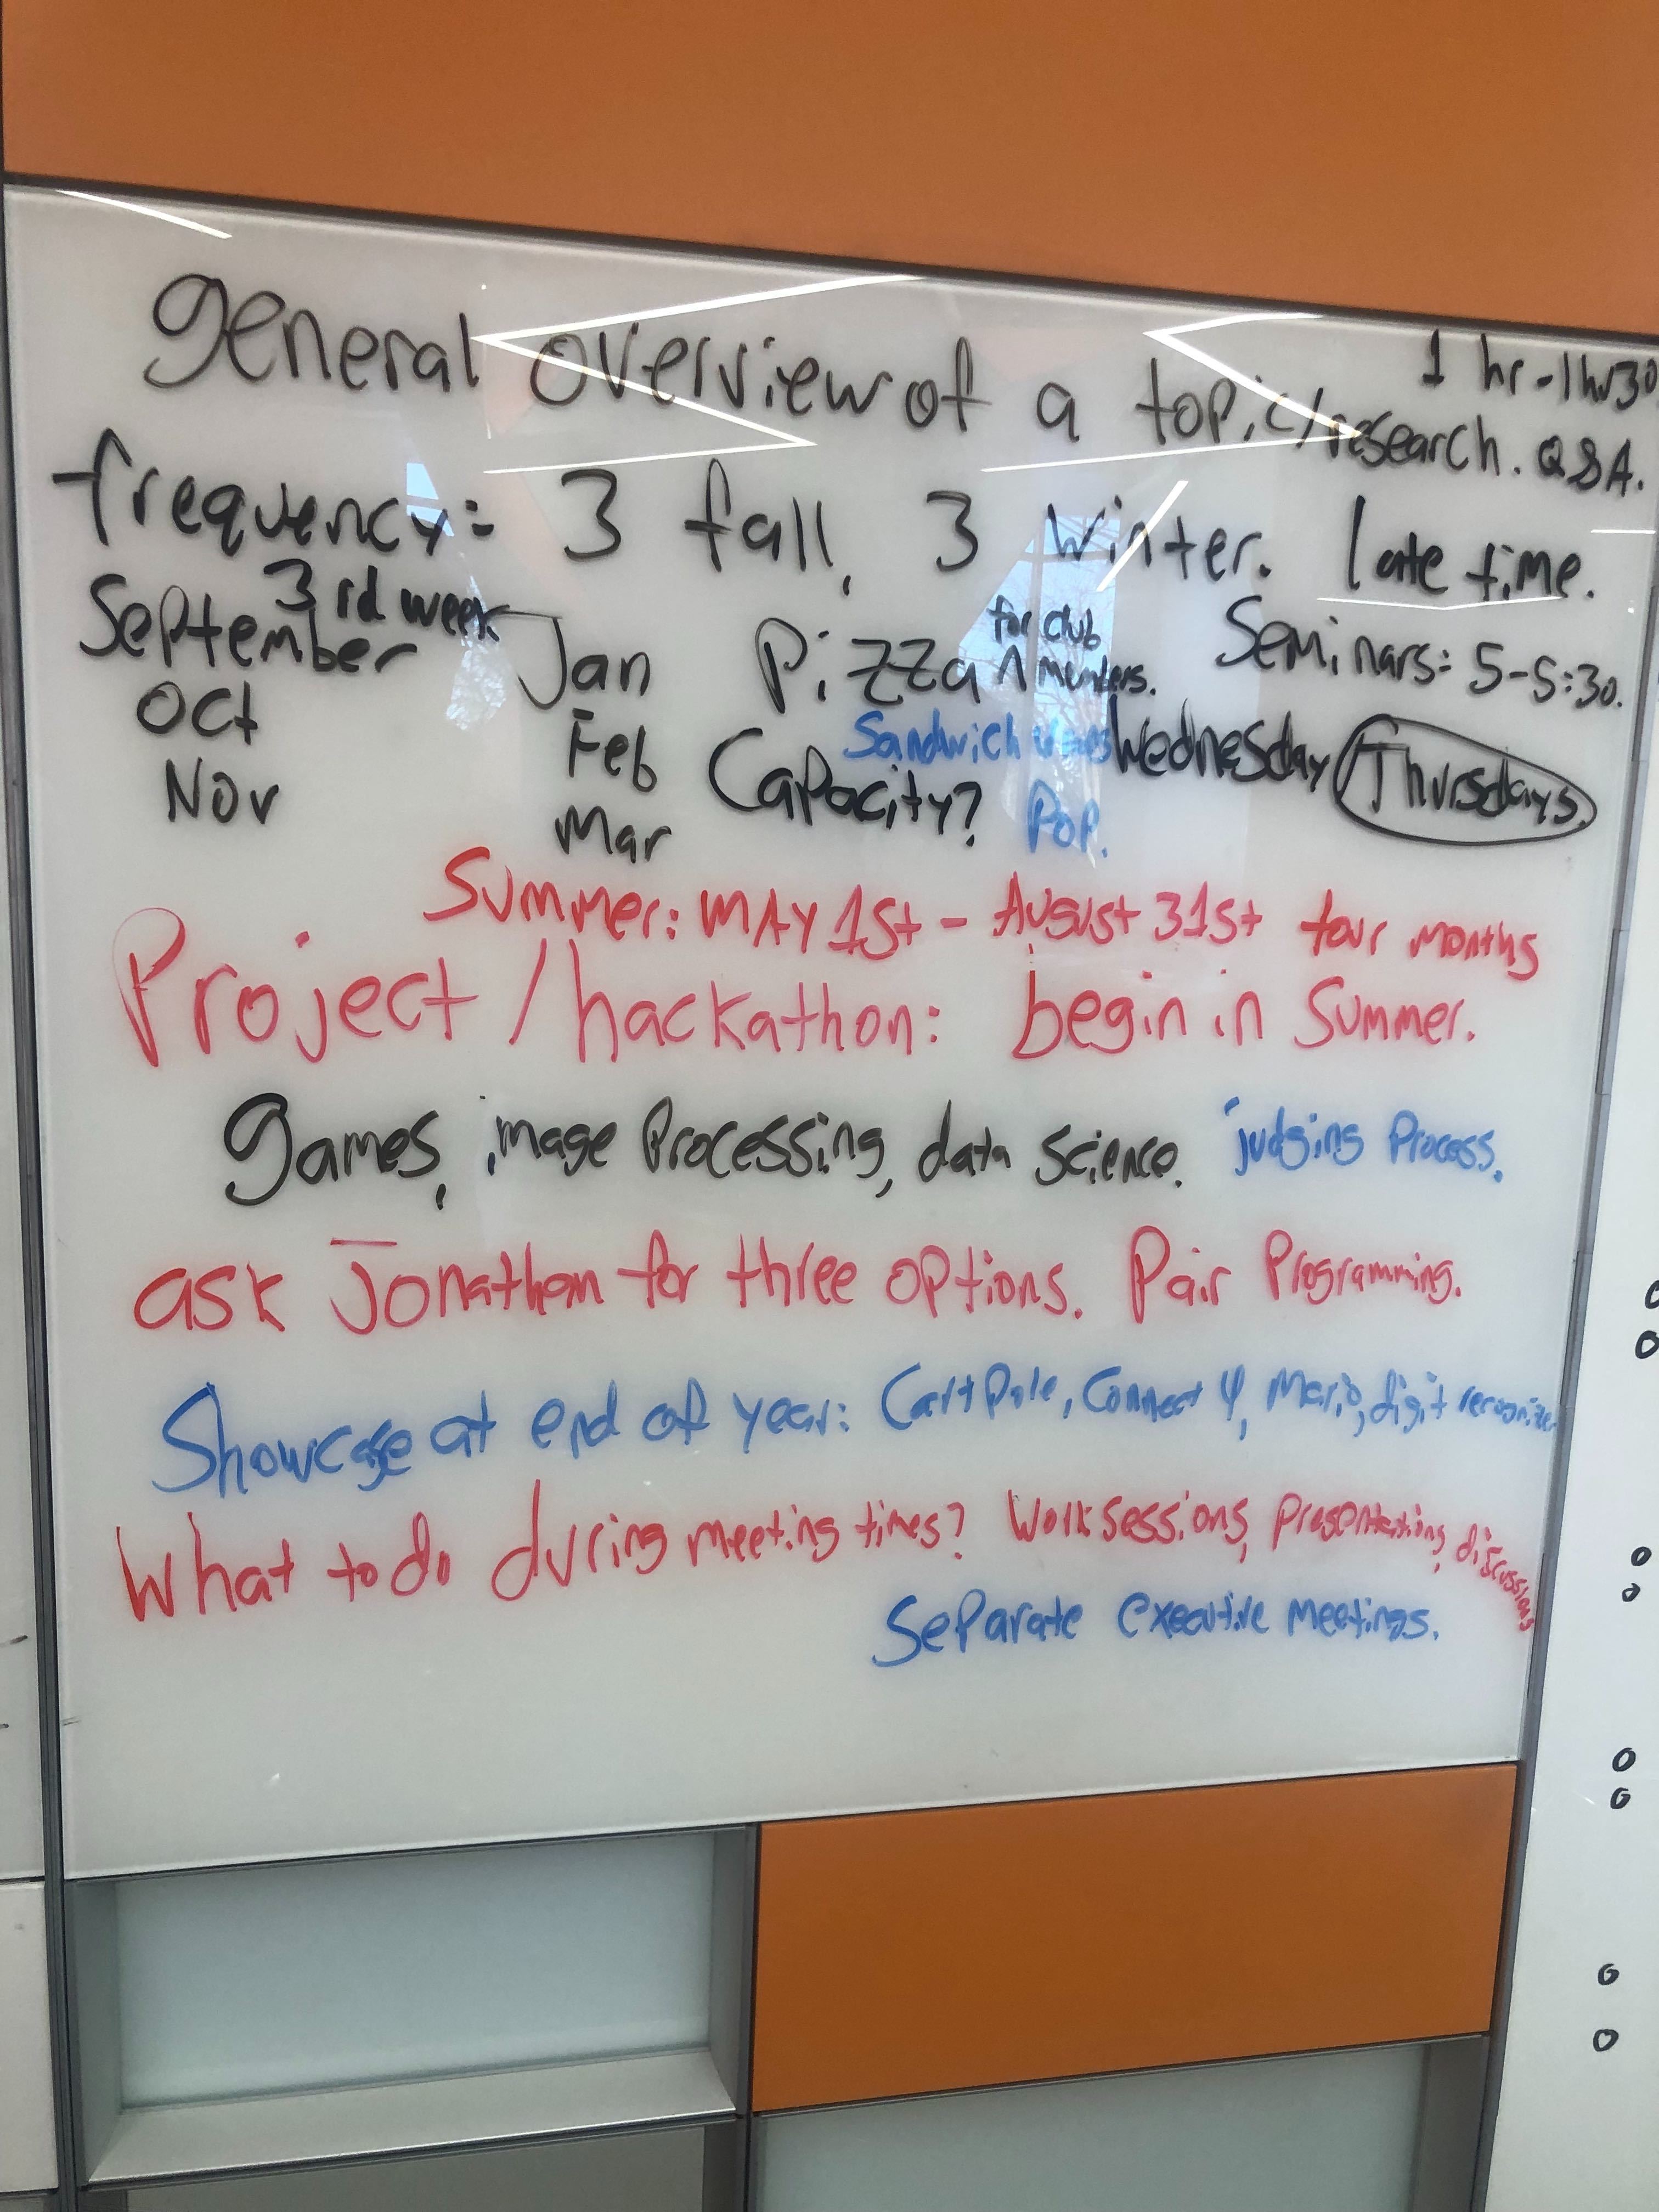 general overview of a topic/research. Q&A.
1 hr - 1hr30
frequency: 3 fall, 3 winter. late time.
3rd week
September
Oct
Nov
Jan
Feb
Mar
Pizza ^ for club members.
Sandwich wraps
Pop.
Capacity?
Seminars: 5-5:30.
Wednesday/Thursdays.
Summer: MAY 1st - August 31st four months
Project/hackathon: begin in summer.
games, image processing, data science. judging process.
ask Jonathan for three options. Pair Programming.
Showcase at end of year: CartPole, Connect 4, Mario, digit recognizer
What to do during meeting times? Work sessions, presentations, discussions
Separate executive meetings.